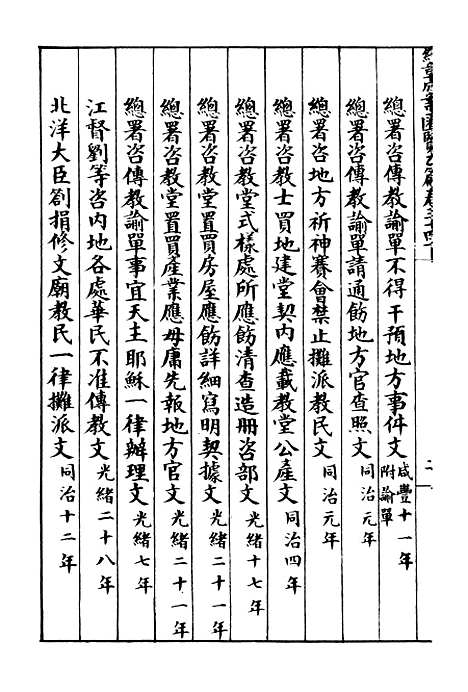 總署咨傳教諭單不得干預地方事件文咸豐十一年附諭單
總署咨傳教諭單請通飭地方官查照文同治元年
總署咨地方祈神賽會禁止攤派教民文同治元年
總署咨教士買地建堂契內應載教堂公產文同治四年
總署咨教堂式樣處所應飭清查造冊咨部文光緒十七年
總署咨教堂置買房屋應飭詳細寫明契據文光緒二十一年
總署咨教堂置買產業應毋庸先報地方官文光緒二十一年
總署咨傳教諭單事宜天主耶穌一律辦理文光緒七年
江督劉等咨內地各處華民不准傳教文光緒二十八年
北洋大臣劄捐修文廟教民一律攤派文同治十二年